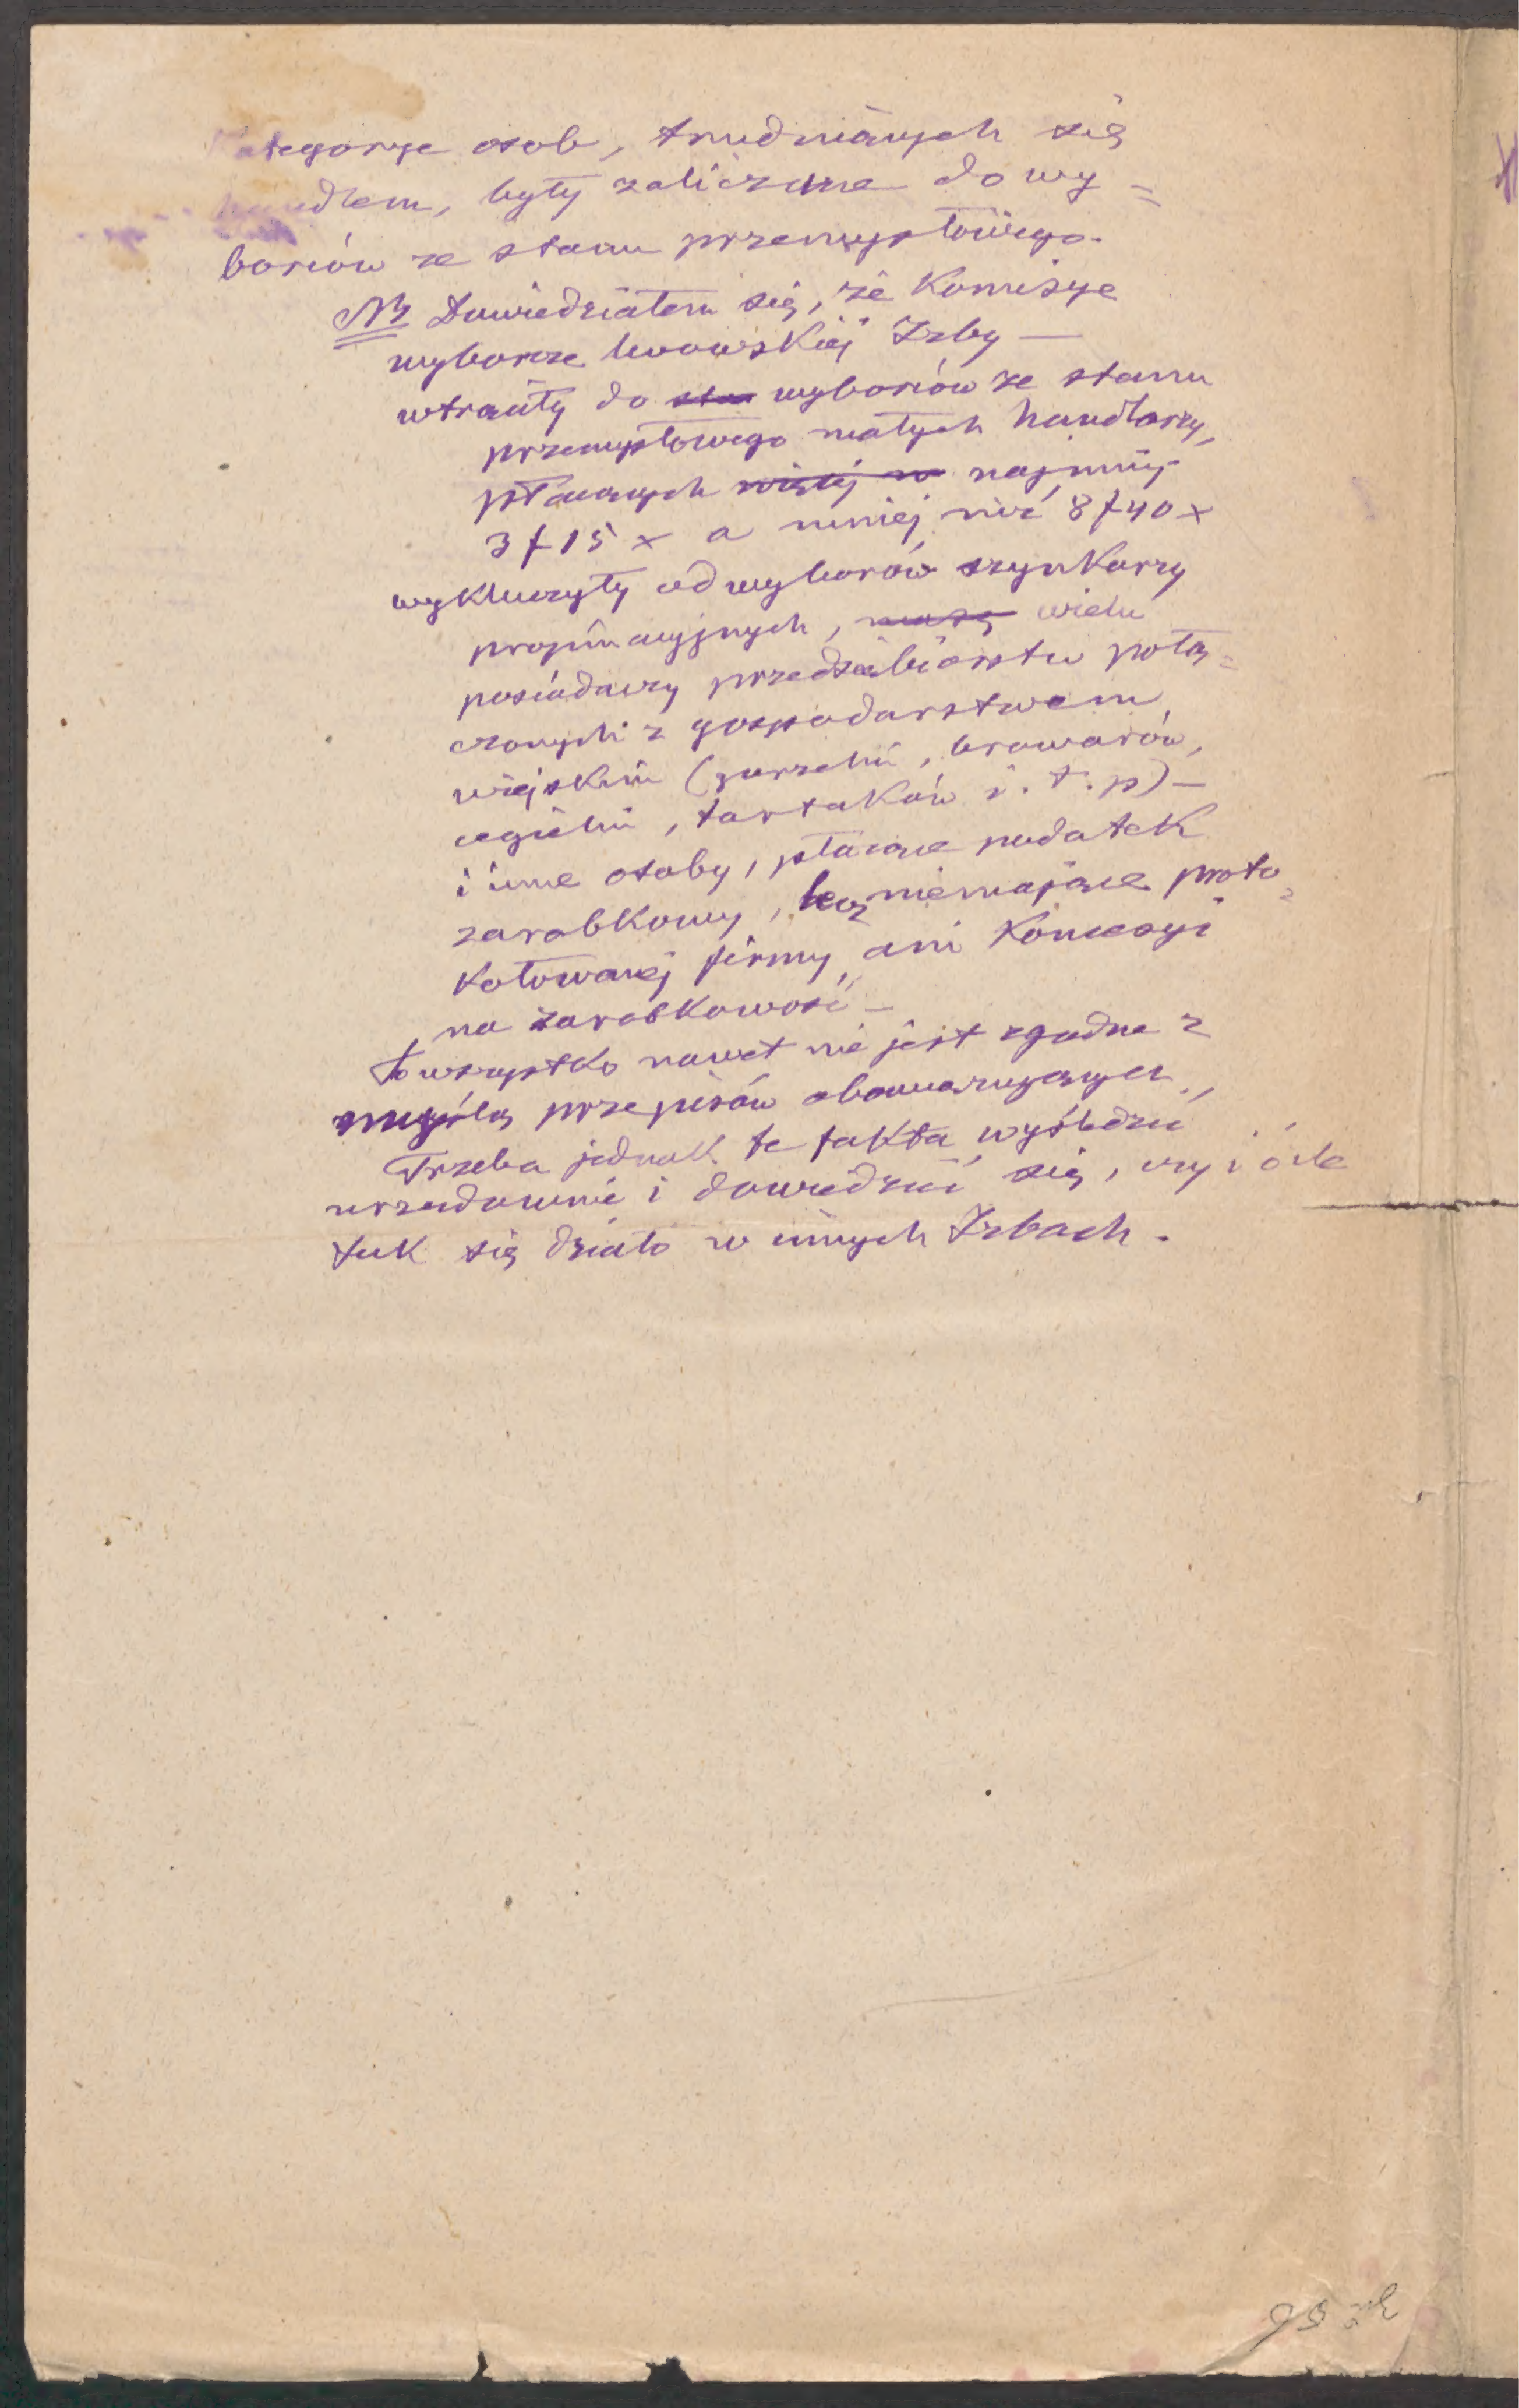 Kategorye osob, trudniących się
handlem, były zaliczone do wy=
borców ze stanu przemysłowego.
NB Dowiedziałem się, że Komisye
wyborcze lwowskiéj Izby —
wtrąciły do sta wyborców ze stanu
przemysłowego małych handlarzy,
płacących więcéj w najmniéj
3 f 15 x a mniej niż 8 f 40 x
wykluczyły od wyborów szynkarzy
propinacyjnych, wielu
posiadaczy przedsiębiorstw połą=
czonych z gospodarstwem
wiejskim (gorzelni, browarów,
cegielni, tartaków i. t. p) —
i inne osoby, płacące podatek
zarobkowy, lecz niemające proto=
kołowanéj firmy, ani Koncesyi
na zarobkowość —
To wszystko nawet nie jest zgodne z
myślą przepisów obowiązujących,
Trzeba jednak te fakta wyśledzić
urzędownie i dowiedzieć się, czy i o ile
tak się działo w innych Izbach.